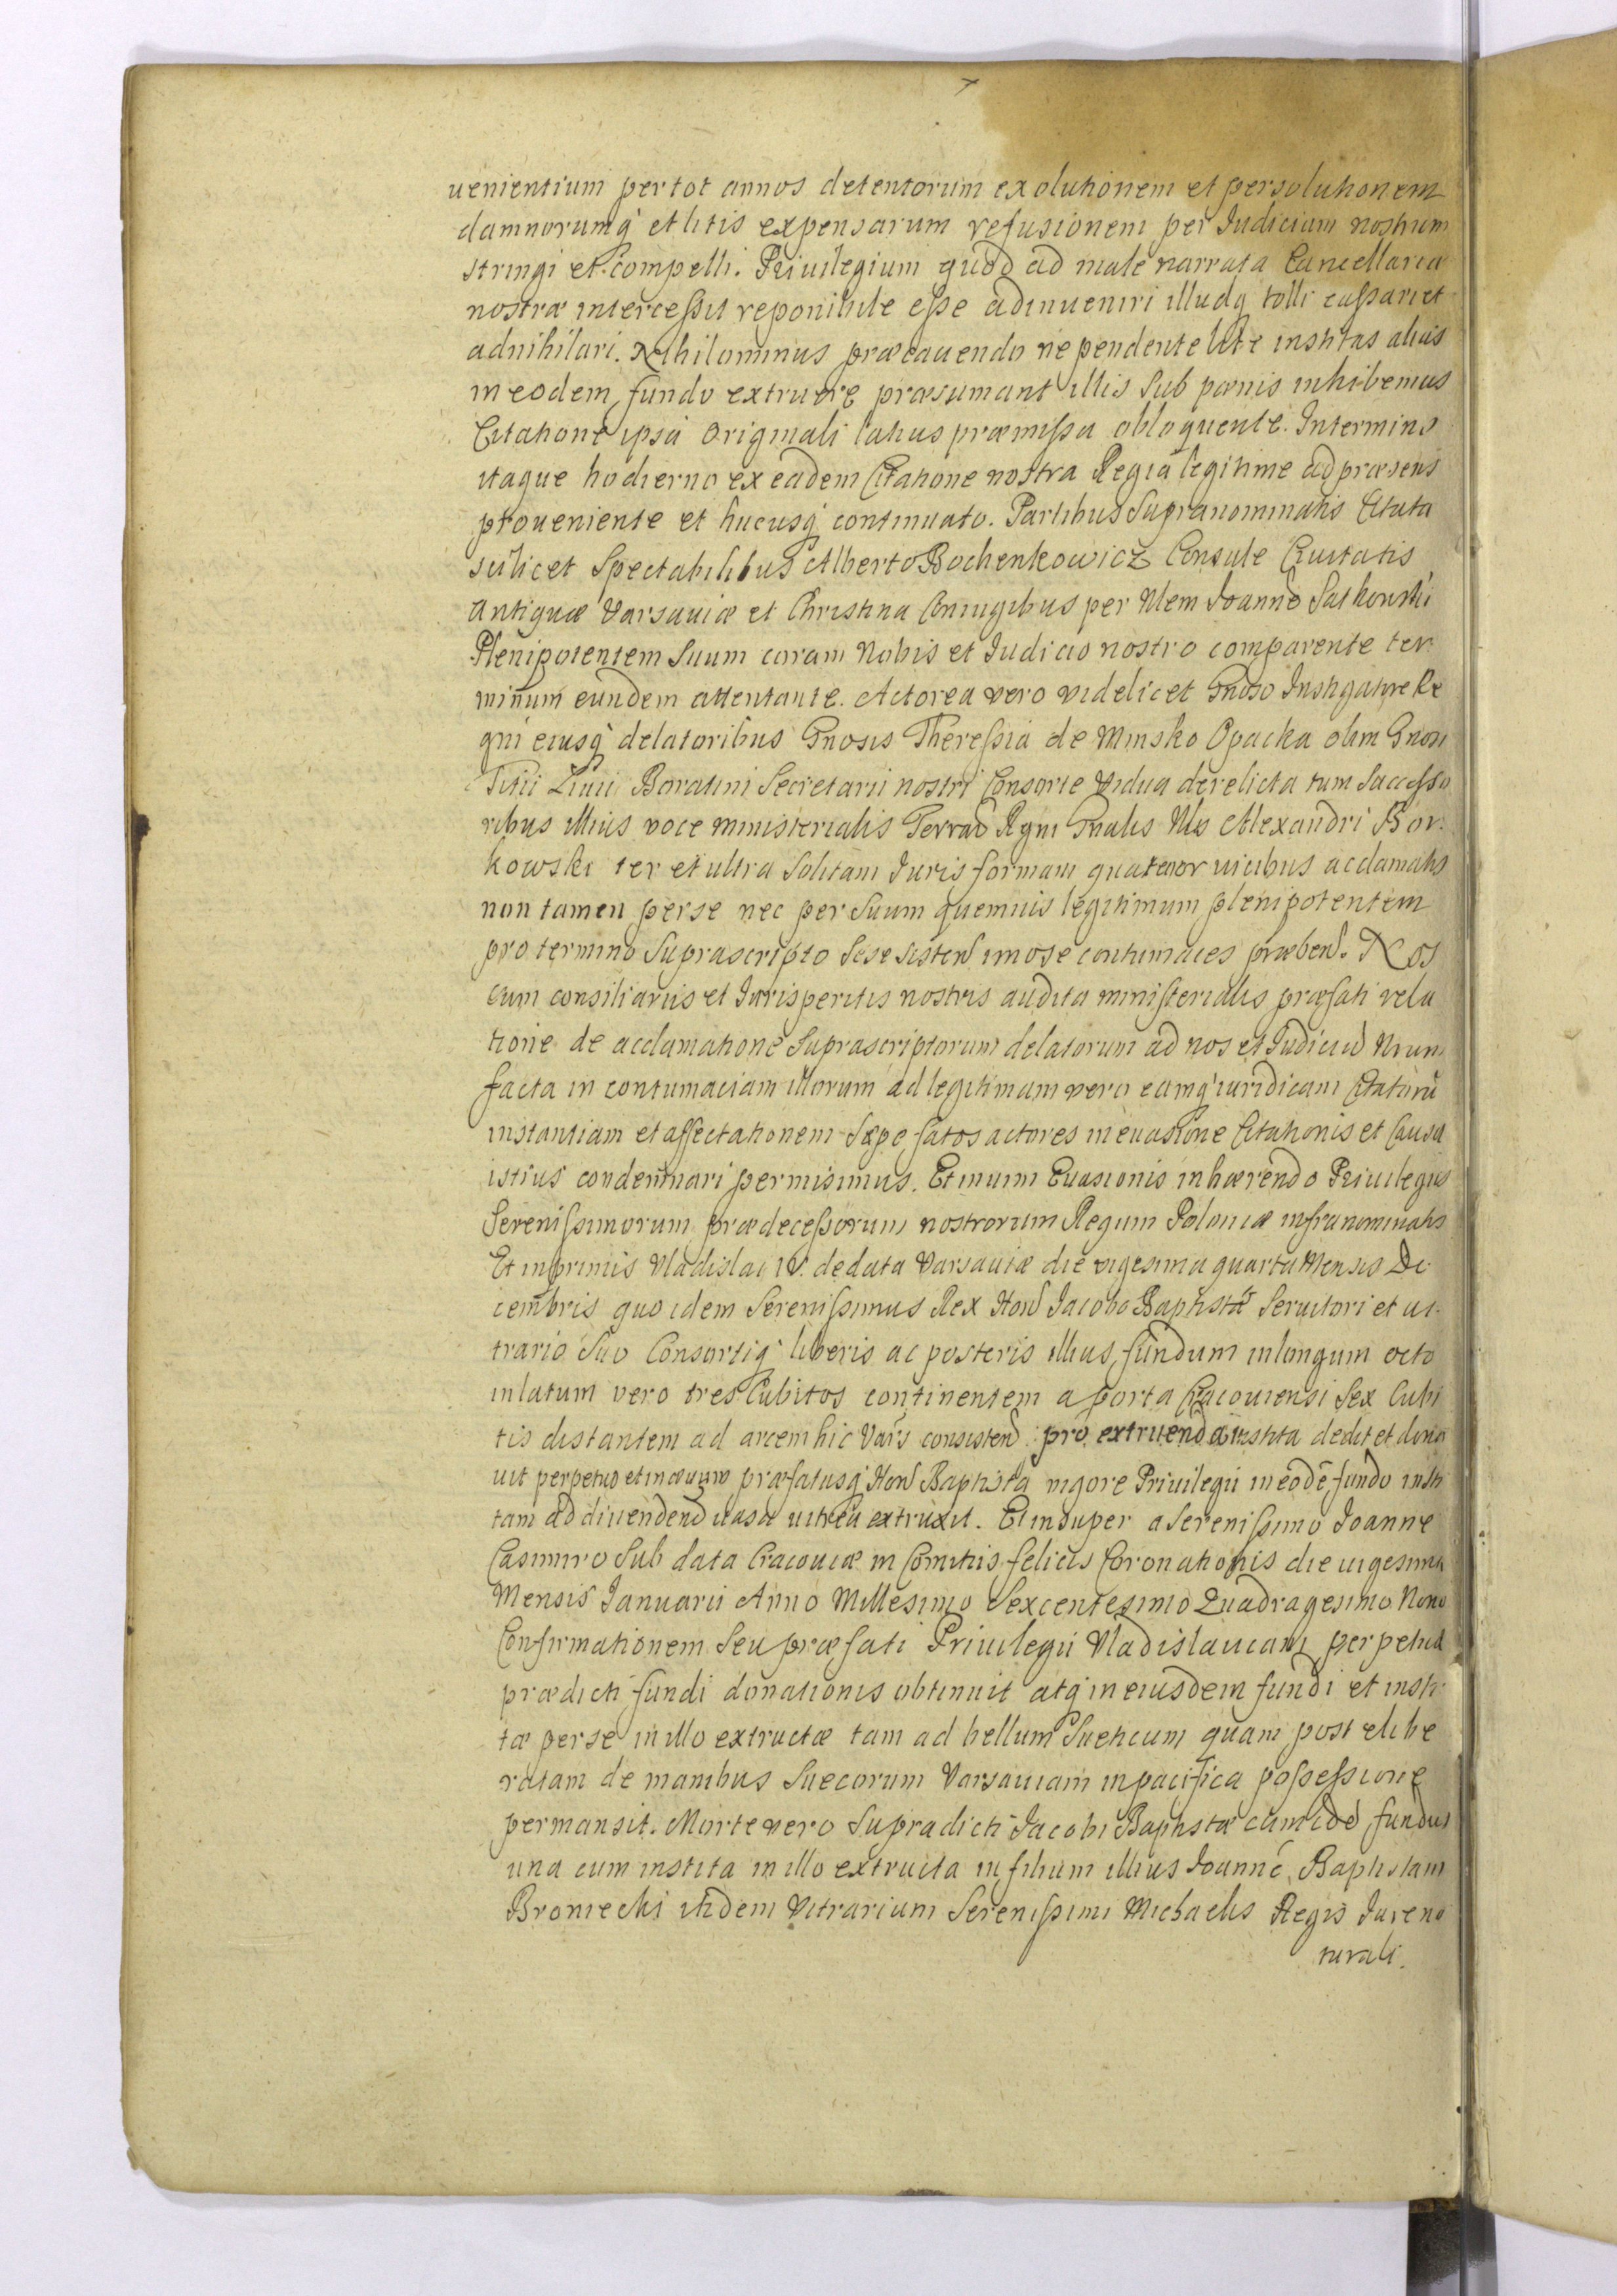 uenientium per tot annos detentorum exolutionem et persolutionem
damnorumq́ et litis expensarum refusionem per Iudicium nostrum
stringi et compelli. Priuilegium quod ad male narrata Cancellariæ
nostræ intercessit reponibile esse adinueniri illudq́ tolli cassari et
adnihilari. Nihilominus præcauendo ne pendente lite institas alias
in eodem fundo extruere præsumant illis sub pœnis inhibemus
Citatione ipsa originali latius præmissa obloquente. In termino
itaque hodierno ex eadem Citatione nostra Regia legitime ad præsens
proueniente et hucusq́ continuato. Partibus supranominatis Citata
scilicet Spectabilibus Alberto Bochenkowicz Consule Ciuitatis
Antiquæ Varsauiæ et Christina Coniugibus per Nlem Joannē
Plenipotentem Suum coram Nobis et Iudicio nostro comparente ter
minum eundem attentante. Actorea vero videlicet Gnoso Instigatore Re
gni eiusq́ delatoribus Gnosis Theressia de Minsko Opacka olim Gnosi
Titi Liuii Boratini Secretarii nostri Consorte Vidua derelicta tum Successo
ribus illius voce ministerialis Terrarū Regni Gnalis Nlis Alexandri Bor
kowski ter et ultra solitam Iuris formam quatuor uicibus acclamatis
non tamen per se nec per suum quemuis legitimum plenipotentem
pro termino suprascripto sese sisten̄ imo se contumaces præben̄. Nos
cum consiliariis et Iurisperitis nostris audita ministerialis præfati rela
tione de acclamatione suprascriptorum delatorum ad nos et Iudiciū Nrum
facta in contumaciam illorum ad legitimam vero eamq́ iuridicam Citatorū
instantiam et affectationem sæpefatos actores in euasione Citationis et Causa
istius condemnari permisimus. Et in uim Euasionis inhærendo Priuilegiis
Serenissimorum prædecessorum nostrorum Regum Poloniæ infranominatis
Et inprimis Vladislai IV. de data Varsauiæ die vigesima quarta Mensis De
cembris quo idem Serenissimus Rex Hon̄ Iacobo Baptistæ Seruitori et ui
trario Suo Consortiq́ liberis ac posteris illius fundum in longum octo
in latum vero tres Cubitos continentem a porta Cracouiensi Sex Cubi
tis distantem ad arcem hic Vars consisten̄ pro extruenda instita dedit et dona
uit perpetuo et in æuum præfatusq́ Hon̄ Baptista vigore Priuilegii in eodē fundo insti
tam ad diuenden̄ uasa uitrea extruxit. Et insuper a Serenissimo Joanne
Casimiro Sub data Cracouiæ in Comitiis felicis Coronationis die uigesima
Mensis Ianuarii Anno Millesimo Sexcentesimo Quadragesimo Nono
Confirmationem seu præfati Priuilegii Vladislauiani perpetuæ
prædicti fundi donationis obtinuit atq́ in eiusdem fundi et insti
tæ per se in illo extructæ tam ad bellum Sueticum quam post elibe
ratam de manibus Suecorum Varsauiam in pacifica possessione
permansit. Morte vero supradicti Iacobi Baptistæ cum idē fundus
una cum instita in illo extructa in filium illius Joannē Baptistam
Broniecki itidem Vitrarium Serenissimi Michaelis Regis Iure na
turali.